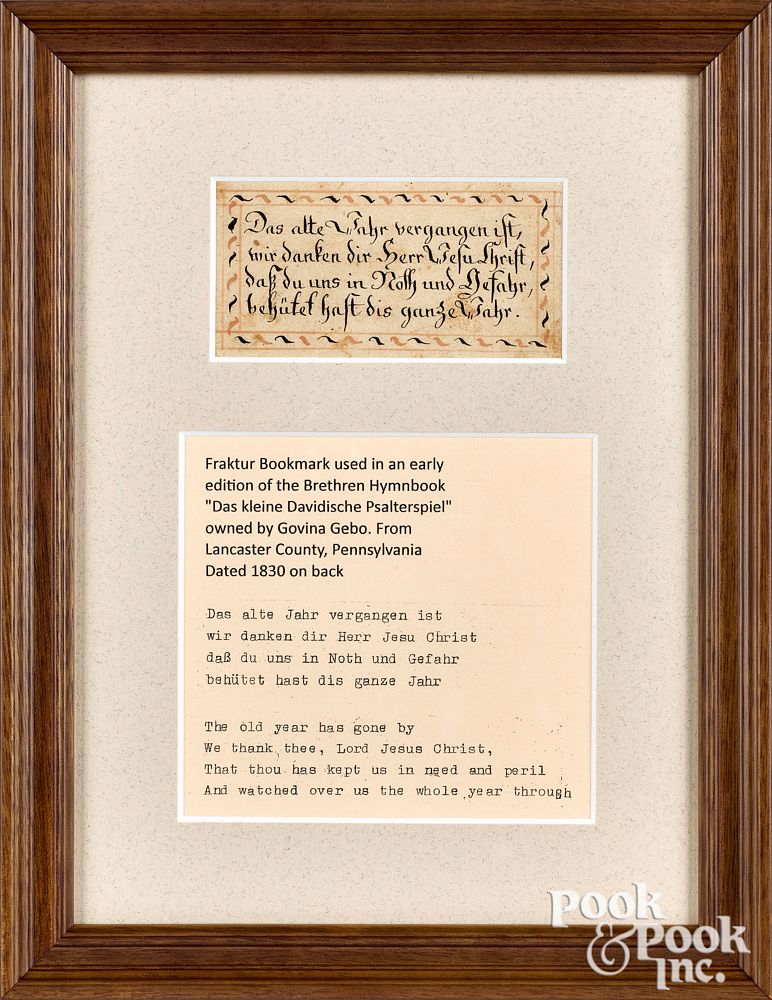 Das alte Jahr vergangen ist,
wir danken dir Herr Jesu Christ,
daß du uns in Noth und Gefahr,
behütet hast dis ganze Jahr.
Fraktur Bookmark used in an early
edition of the Brethren Hymnbook
"Das kleine Davidische Psalterspiel"
owned by Govina Gebo. From
Lancaster County, Pennsylvania
Dated 1830 on back
Das alte Jahr vergangen ist
wir danken dir Herr Jesu Christ
daß du uns in Noth und Gefahr
behütet hast dis ganze Jahr
The old year has gone by
We thank thee, Lord Jesus Christ,
That thou has kept us in need and peril
And watched over us the whole year through
Pook
& Pook
Inc.